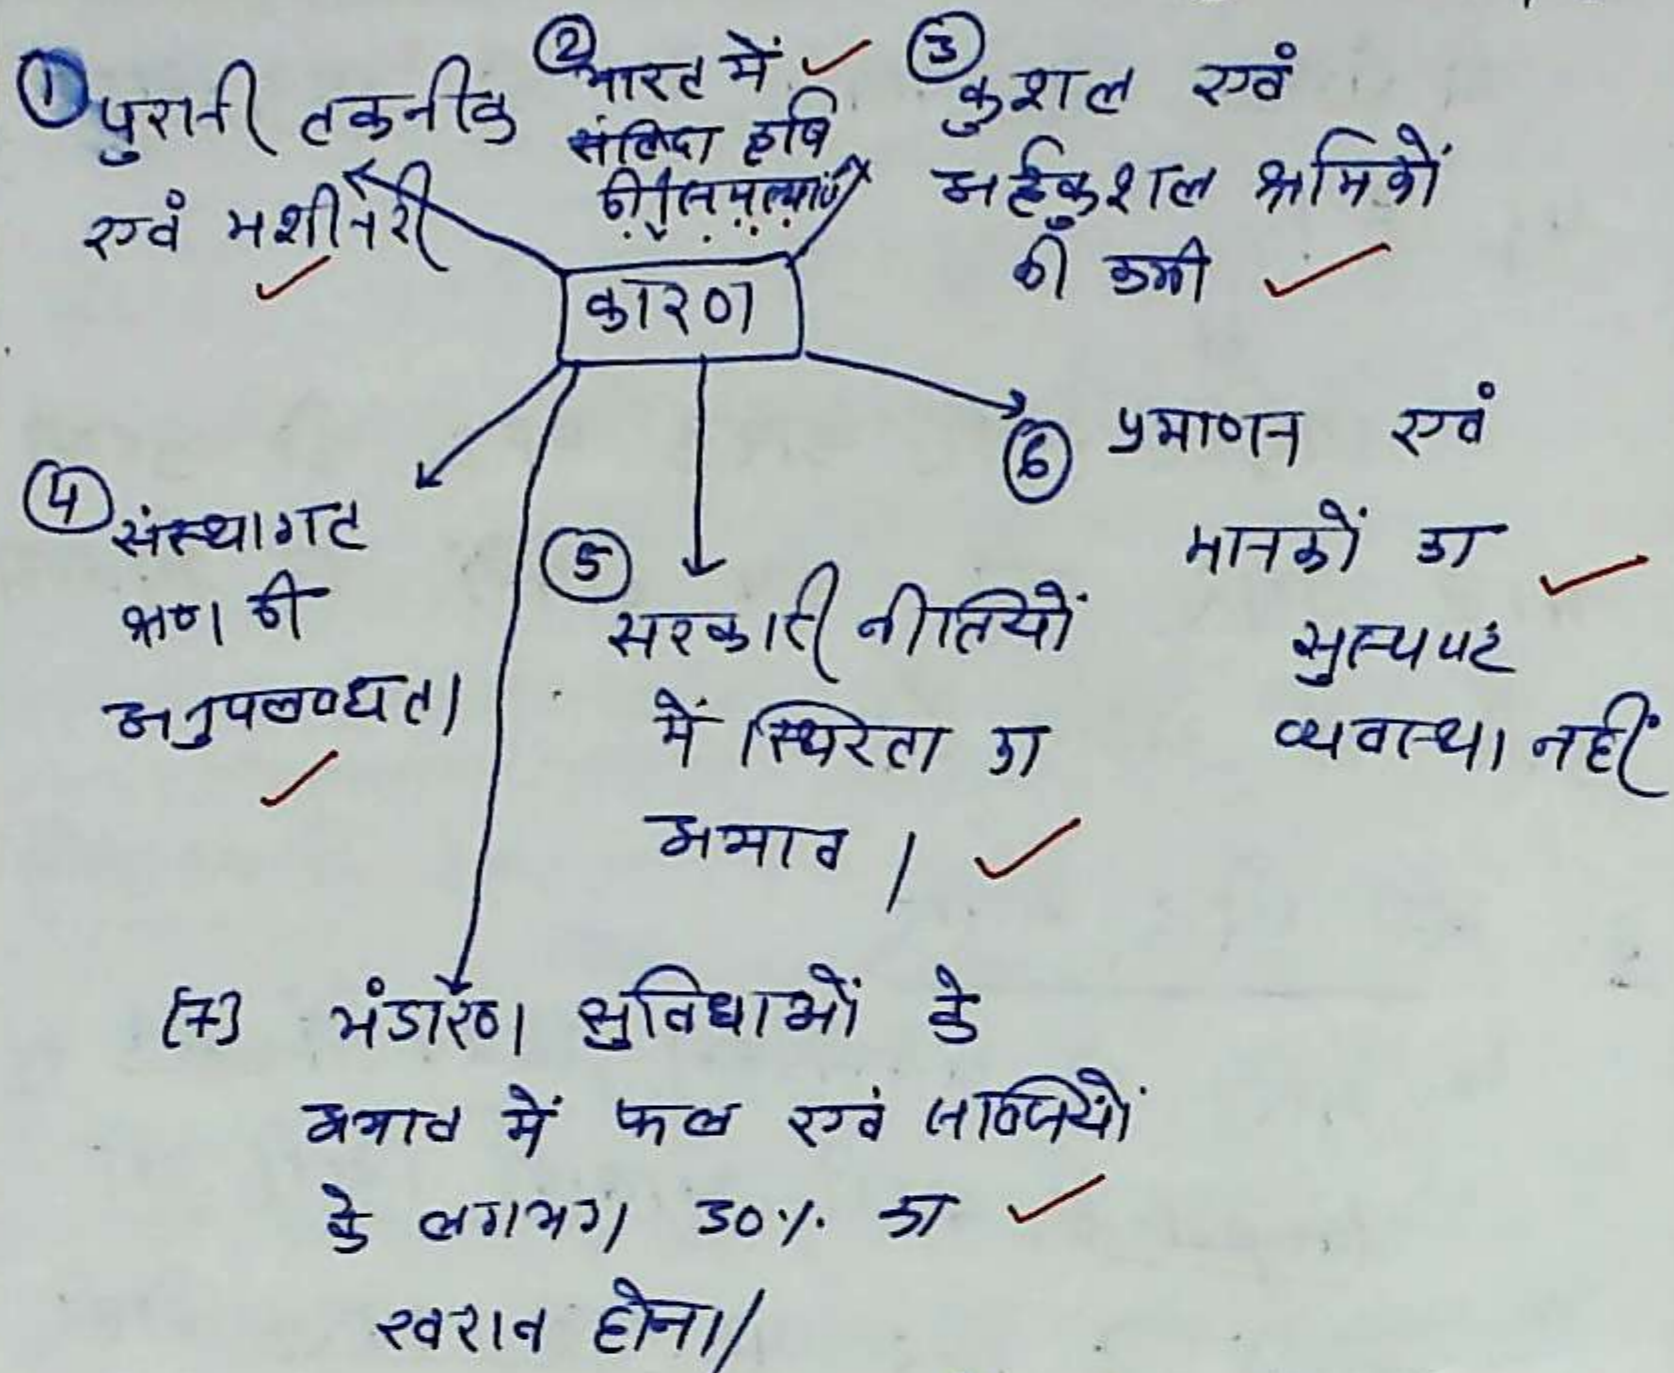 ① पुरानी तकनीक
एवं मशीनरी
② भारत में
संविदा कृषि
की
③ कुशल एवं
अर्द्धकुशल श्रमिकों
की कमी
कारण
④ संस्थागत
ऋण की
अनुपलब्धता
⑤ सरकारी नीतियों
में स्थिरता का
अभाव।
⑥ प्रमाणन एवं
मानकों का
सुस्पष्ट
व्यवस्था नहीं
(7) भंडारण सुविधाओं के
अभाव में फल एवं सब्जियों
के लगभग 30% का
खराब होना।